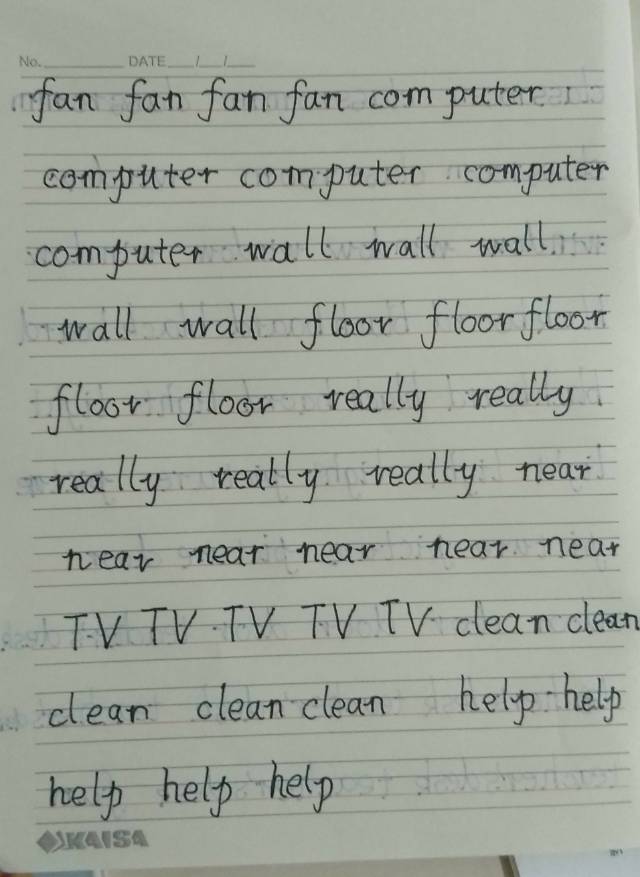 No. DATE / /
fan fan fan fan computer
computer computer computer
computer wall wall wall
wall wall floor floor floor
floor floor really really
really really really near
near near near near near
TV TV TV TV TV clean clean
clean clean clean help help
help help help
KAISA